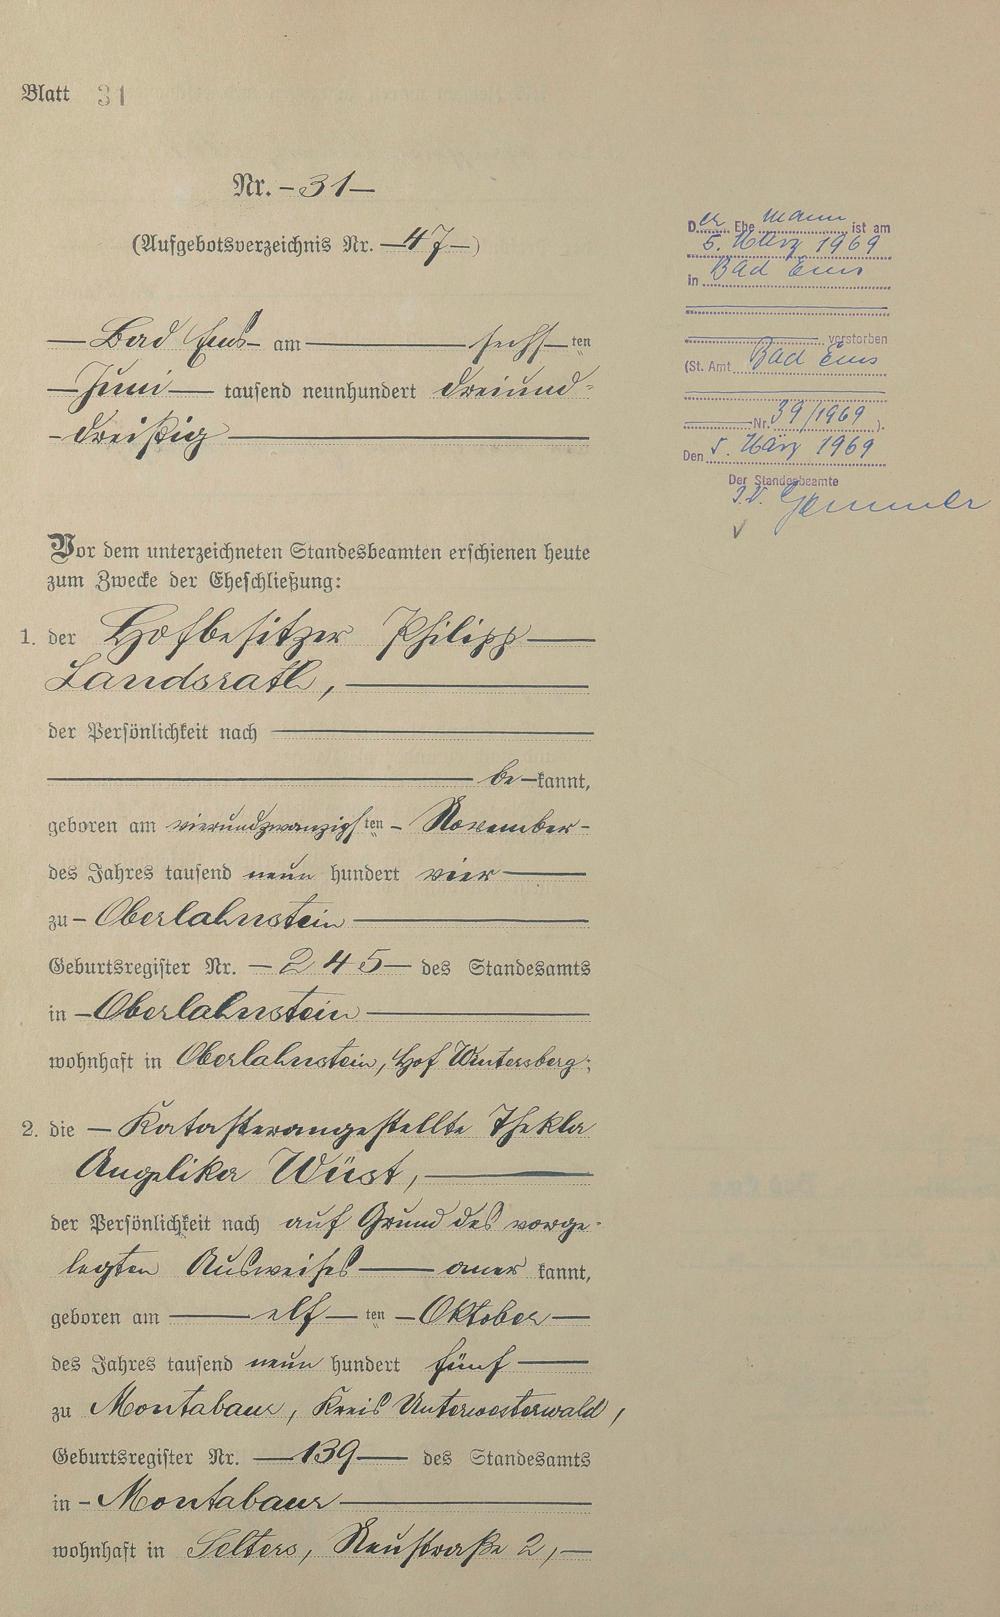 Blatt 31
Nr. – 31 –
(Aufgebotsverzeichnis Nr. – 47 – )
– Bad Ems – am – sechs – ten
– Juni – tausend neunhundert dreiund-
- dreißig –
Vor dem unterzeichneten Standesbeamten erschienen heute
zum Zwecke der Eheschließung:
1. der Hofbesitzer Philipp –
Landsrath, –
der Persönlichkeit nach –
– be – kannt,
geboren am vierundzwanzigsten – November –
des Jahres tausend neun hundert vier –
zu – Oberlahnstein –
Geburtsregister Nr. – 245 – des Standesamts
in – Oberlahnstein –
wohnhaft in Oberlahnstein, Hof Wintersberg;
2. die – Katasterangestellte Thekla
Angelika Wüst, –
der Persönlichkeit nach auf Grund des vorge-
legten Ausweises – aner kannt,
geboren am – elf – ten – Oktober –
des Jahres tausend neun hundert fünf –
zu Montabaur, Kreis Unterwesterwald,
Geburtsregister Nr. – 139 – des Standesamts
in – Montabaur –
wohnhaft in Selters, Neustraße 2, –
Der Ehe mann ist am
5. März 1969
in Bad Ems
verstorben
(St. Amt Bad Ems
Nr. 39/1969 ).
Den 5. März 1969
Der Standesbeamte
I.V.